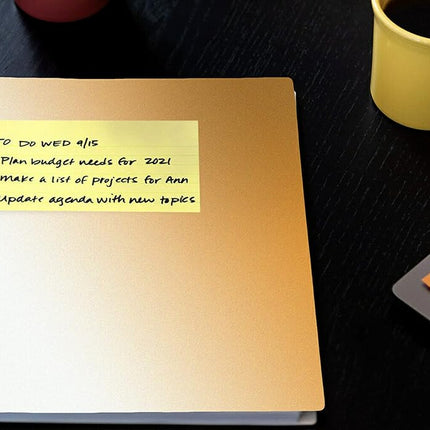 TO DO WED 9/15
Plan budget needs for 2021
make a list of projects for Ann
update agenda with new topics